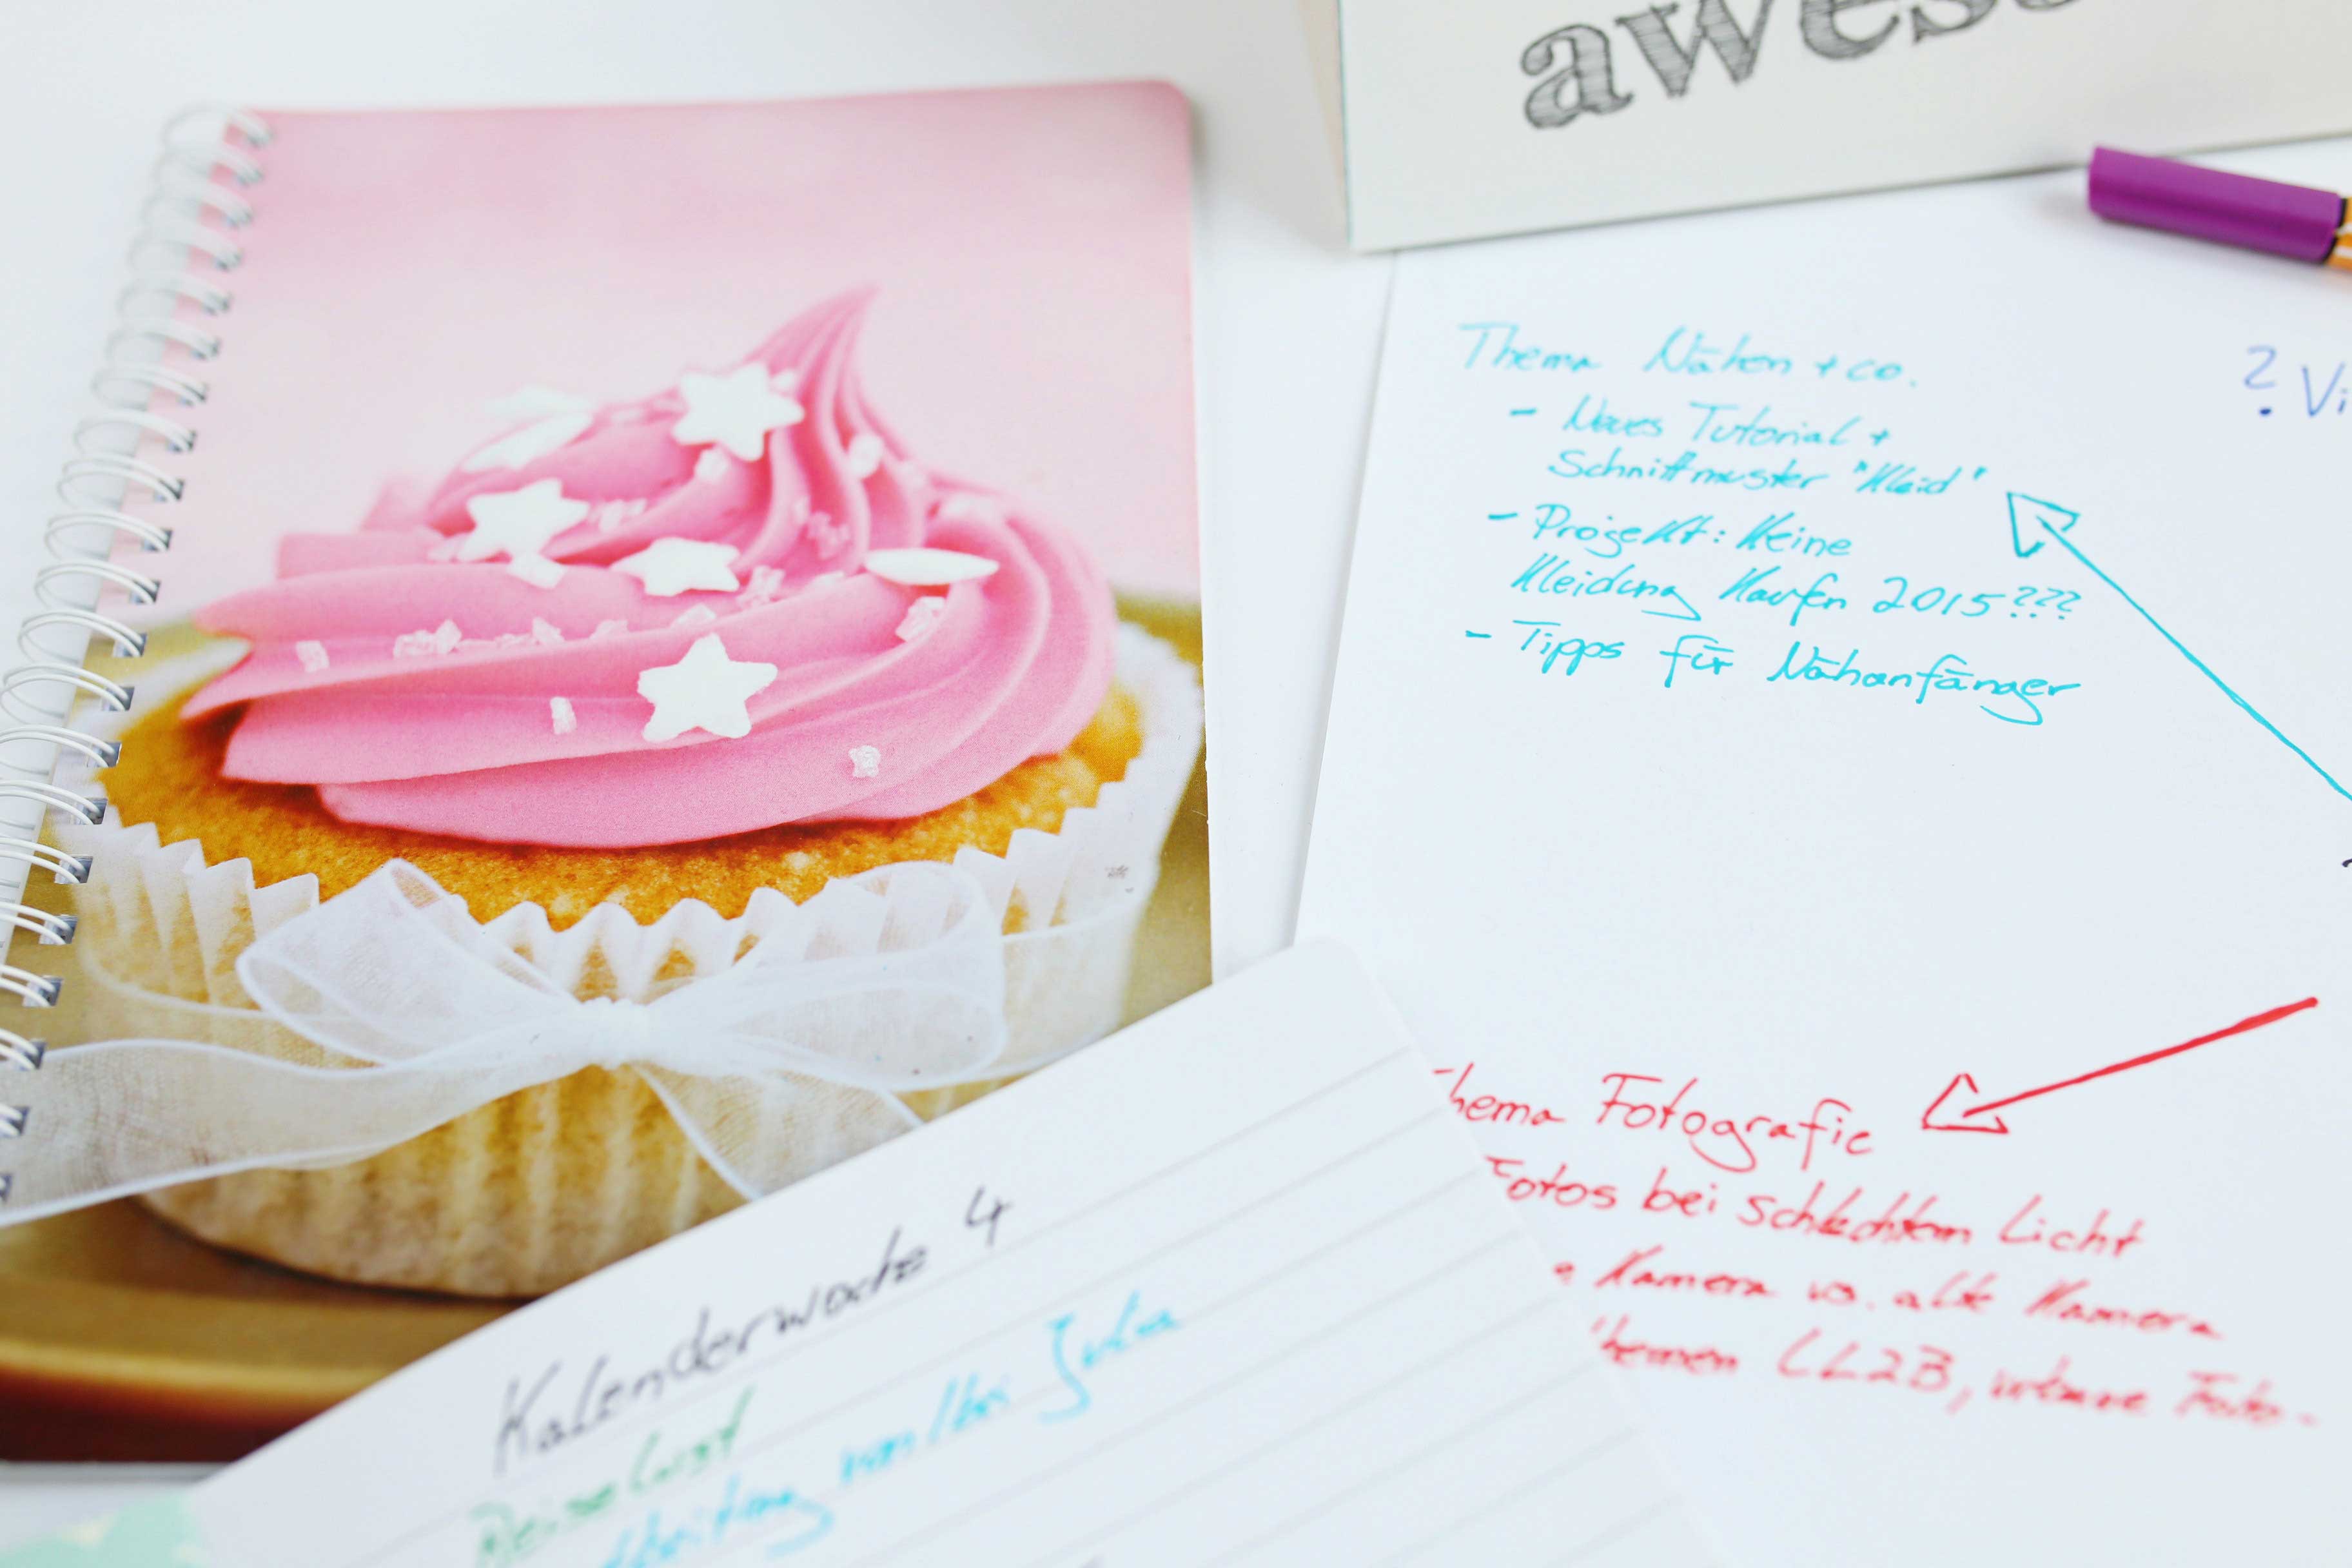 awes
Thema Nähen + co.
- Neues Tutorial +
Schnittmuster "Kleid"
- Projekt: Keine
Kleidung Kaufen 2015???
- Tipps für Nähanfänger
? Vi
hema Fotografie
Fotos bei schlechtem Licht
Kamera vs. alte Kamera
hemen LL2B, Foto-
Kalenderwoche 4
Reiselust
von/bei